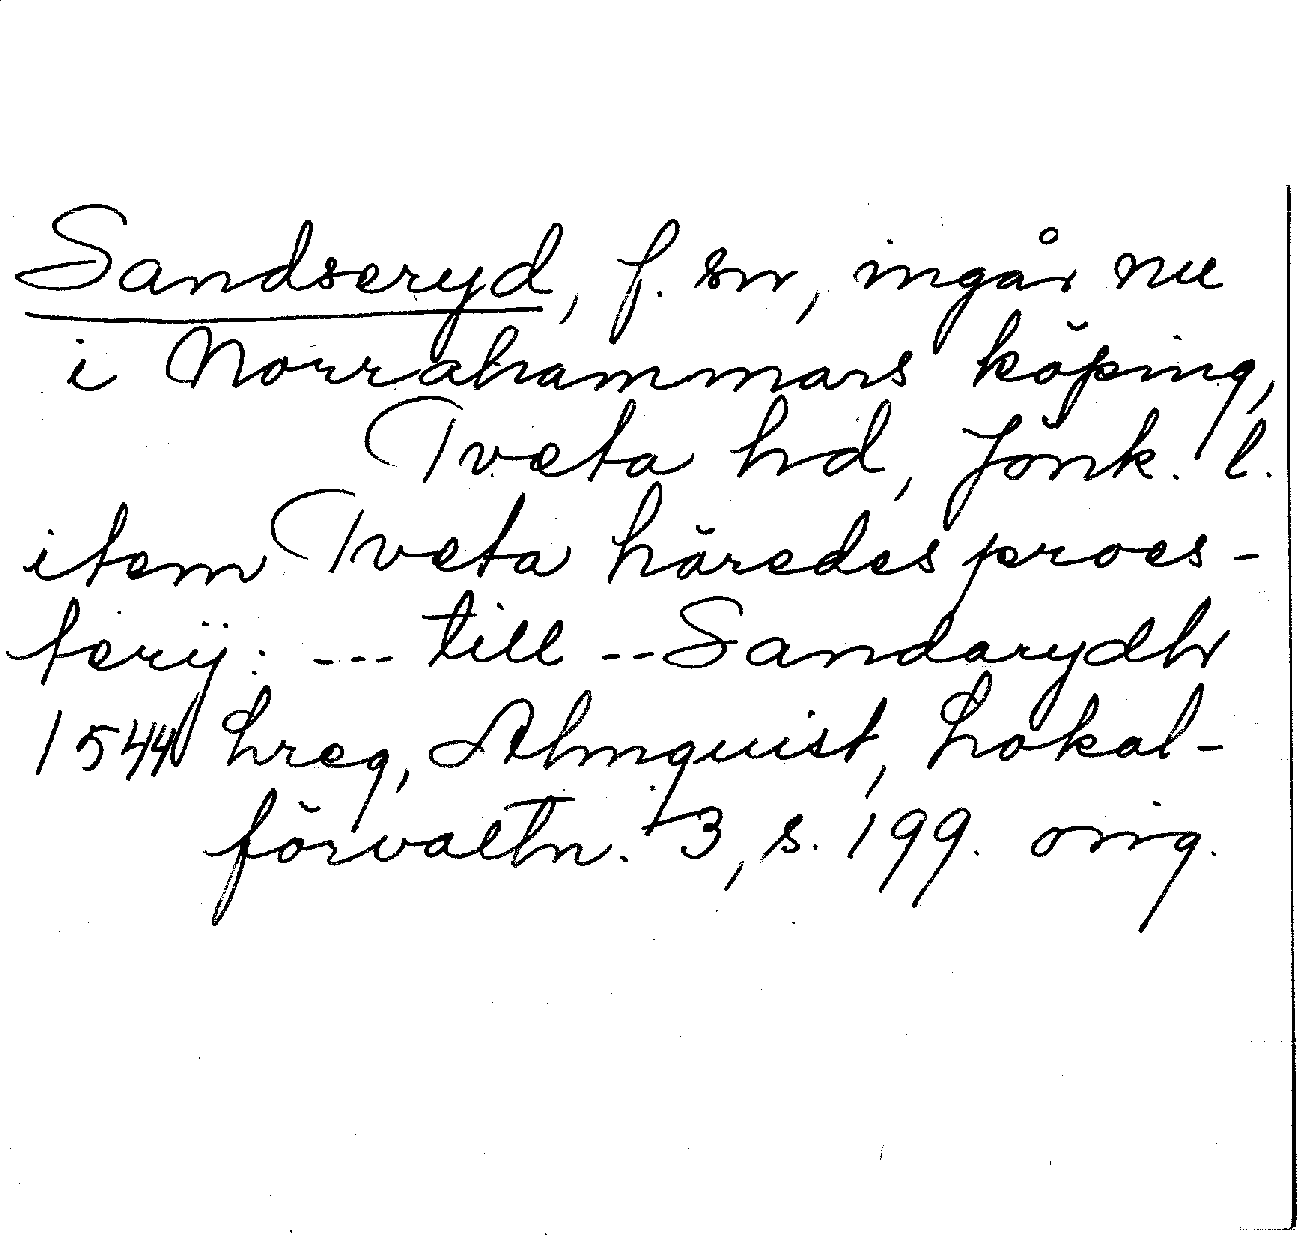 Sandseryd, f. sn, ingår nu
i Norrahammars köping,
Tveta hd, Jönk. l.
item Tveta häredes proes-
terij: --- till -- Sandarydh
1544 Lreg, Almquist, Lokal-
förvaltn. 3, s. 199. orig.